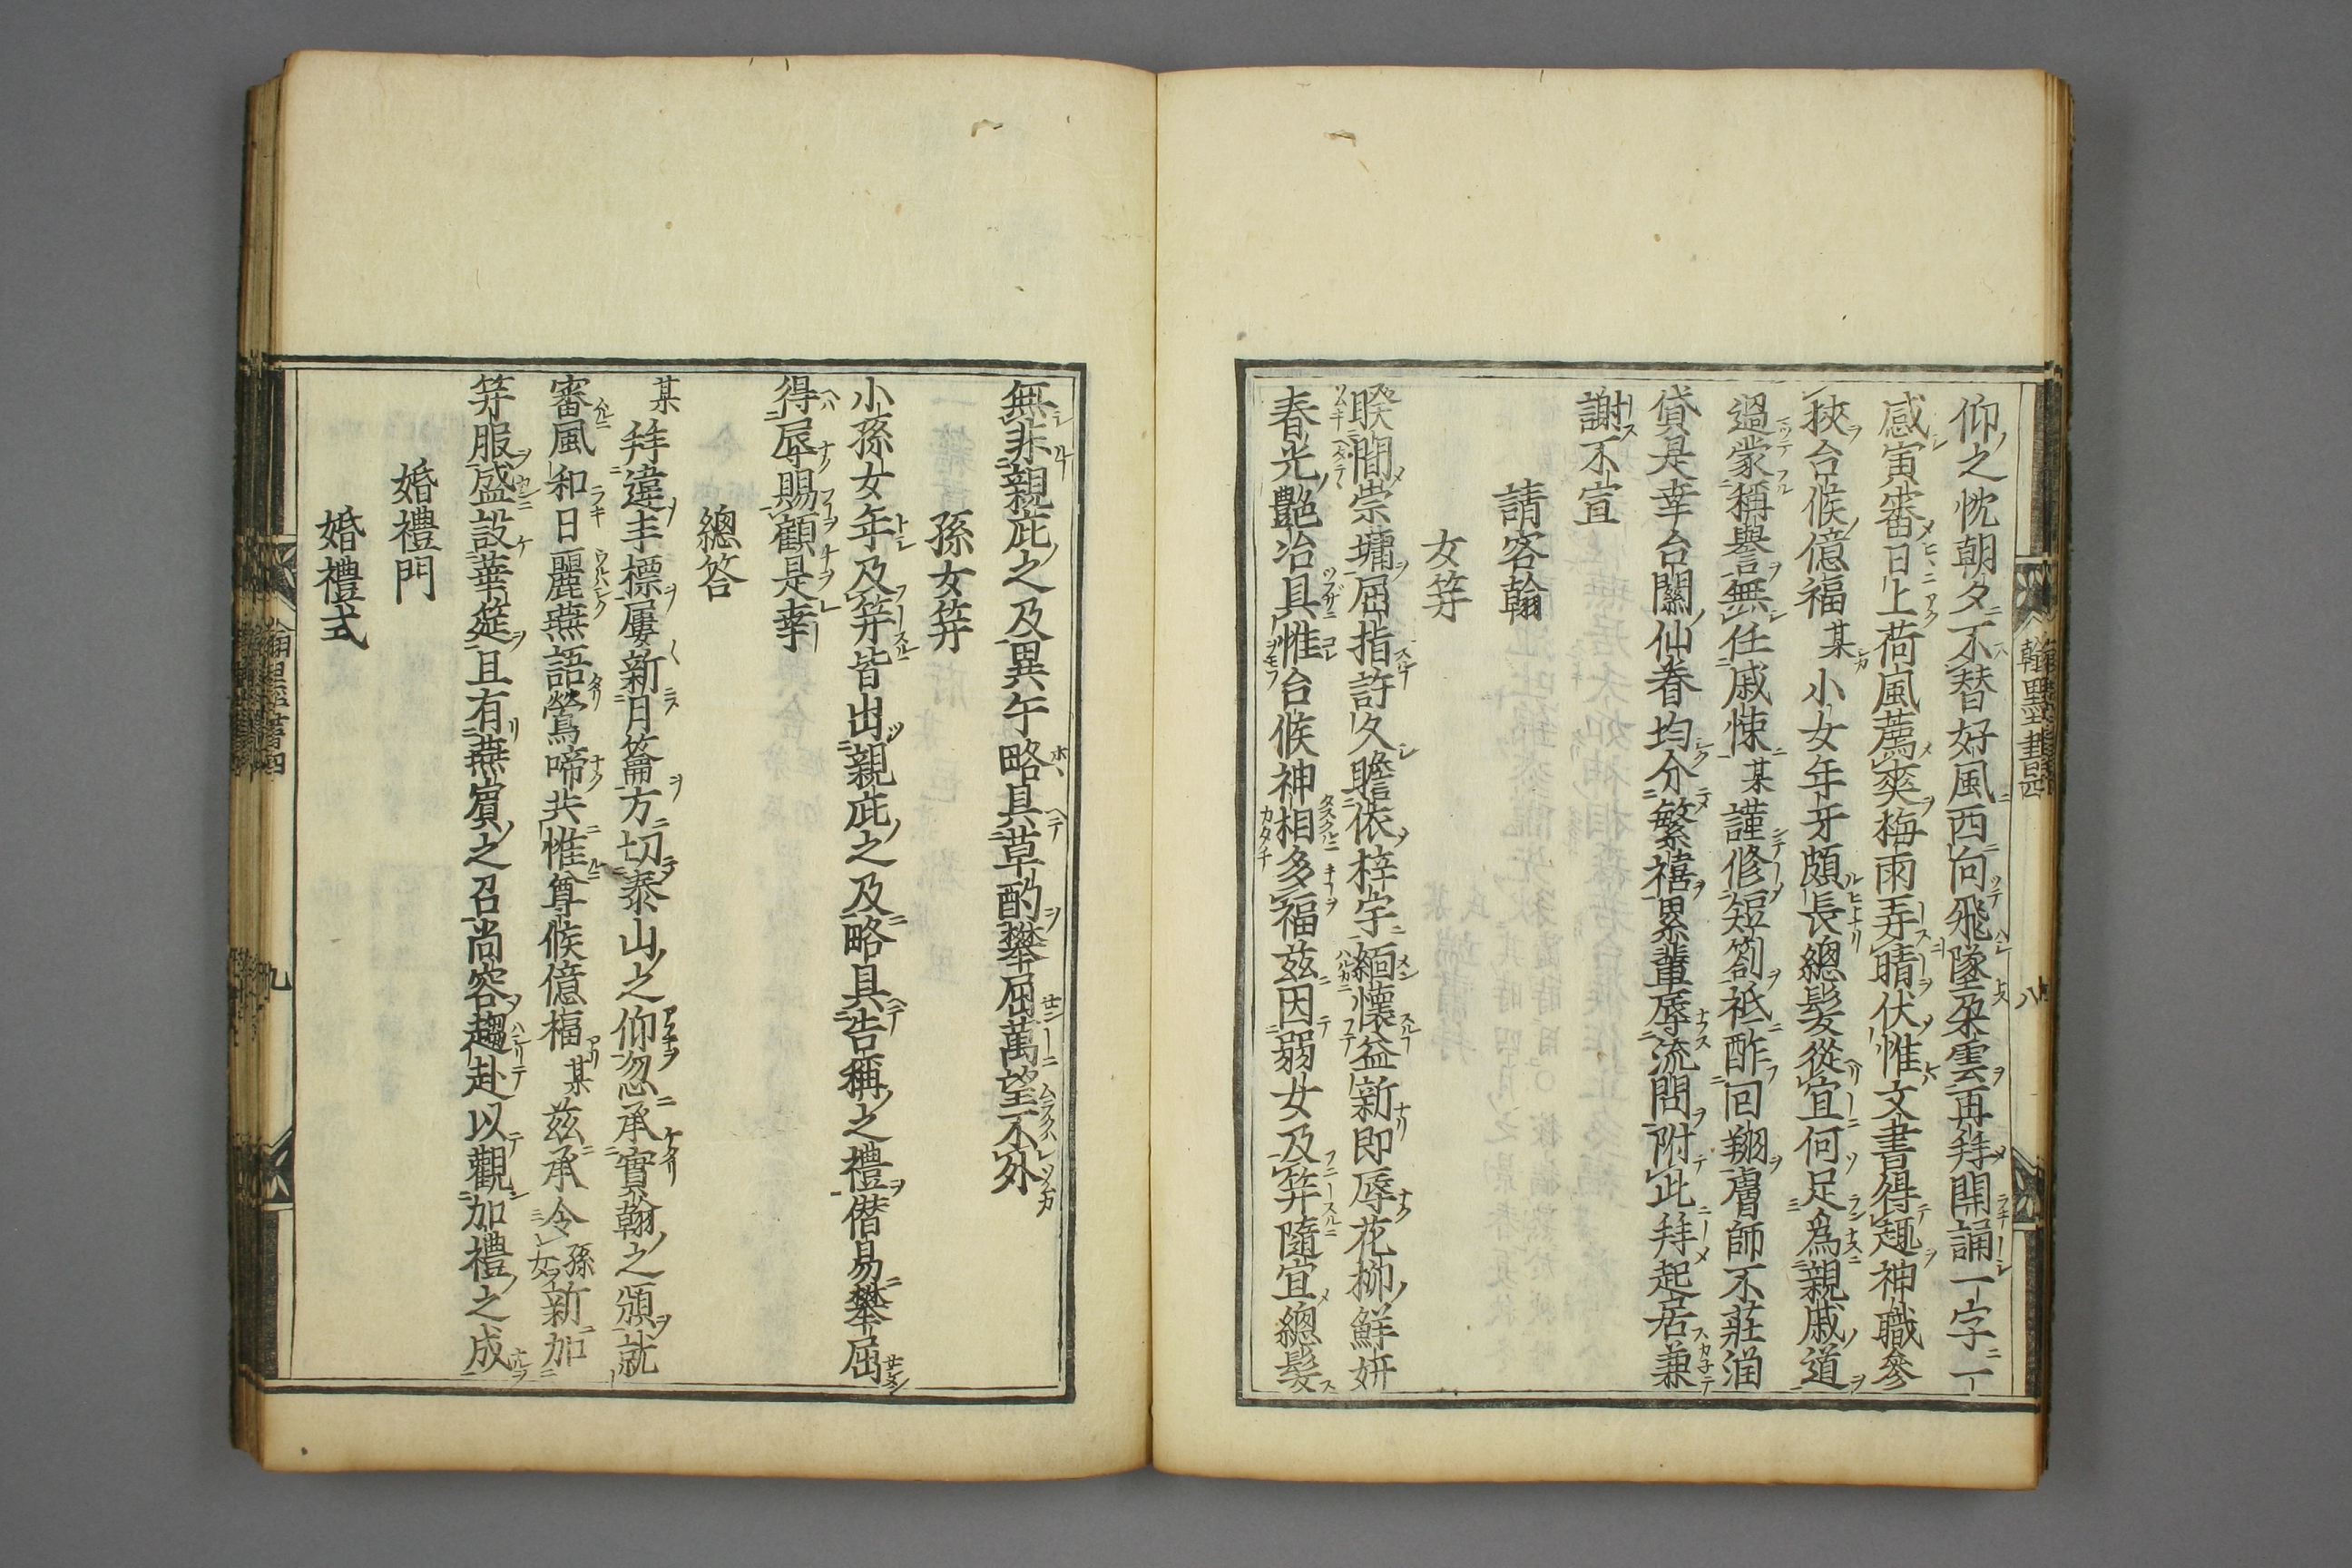 仰之忱朝夕不替好風西向飛墜朶雲再拜開誦一字一
感寅審日上荷風薦爽梅雨弄晴伏惟文書得趣神職參
挾台候億福某小女年牙頗長總髮從宜何足為親戚道
過蒙稱譽無任戚悚某謹修短劄祗酢回翔膚師不莊潤
貸是幸台閫仙眷均介繁禧累輩辱流問附此拜起居兼
謝不宣
請客翰
女笄
睽間崇墉屈指許久瞻依梓宇緬懷益新即辱花柳鮮妍
春光艷冶具惟台候神相多福茲因弱女及笄隨宜總髮
無非親庇之及異午略具草酌攀屈萬望不外
孫女笄
小孫女年及笄皆出親庇之及略具告稱之禮僭易攀屈
得辱賜顧是幸
總答
某拜違丰標屢新月籥方切泰山之仰忽承寶翰之頒就
審風和日麗燕語鶯啼共惟尊候億福某茲承令孫女新加
笄服盛設華筵且有燕賓之召尚容趨赴以觀加禮之成
婚禮門
婚禮式
翰墨書四
八
九